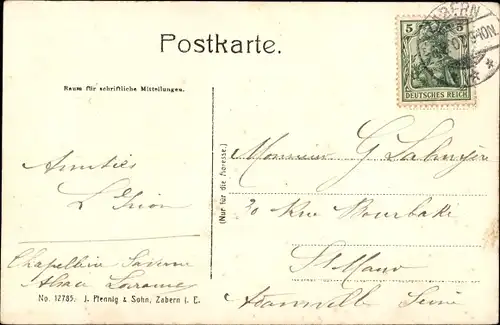 Postkarte.
5 5
DEUTSCHES REICH
ZABERN
Raum für schriftliche Mitteilungen.
(Nur für die Adresse.)
Amitiés
Monsieur G
20 Rue Bourbaki
St Maur
Seine
Chapellerie Saverne
Alsace Lorraine
No. 12785. J. Pfennig & Sohn, Zabern i. E.